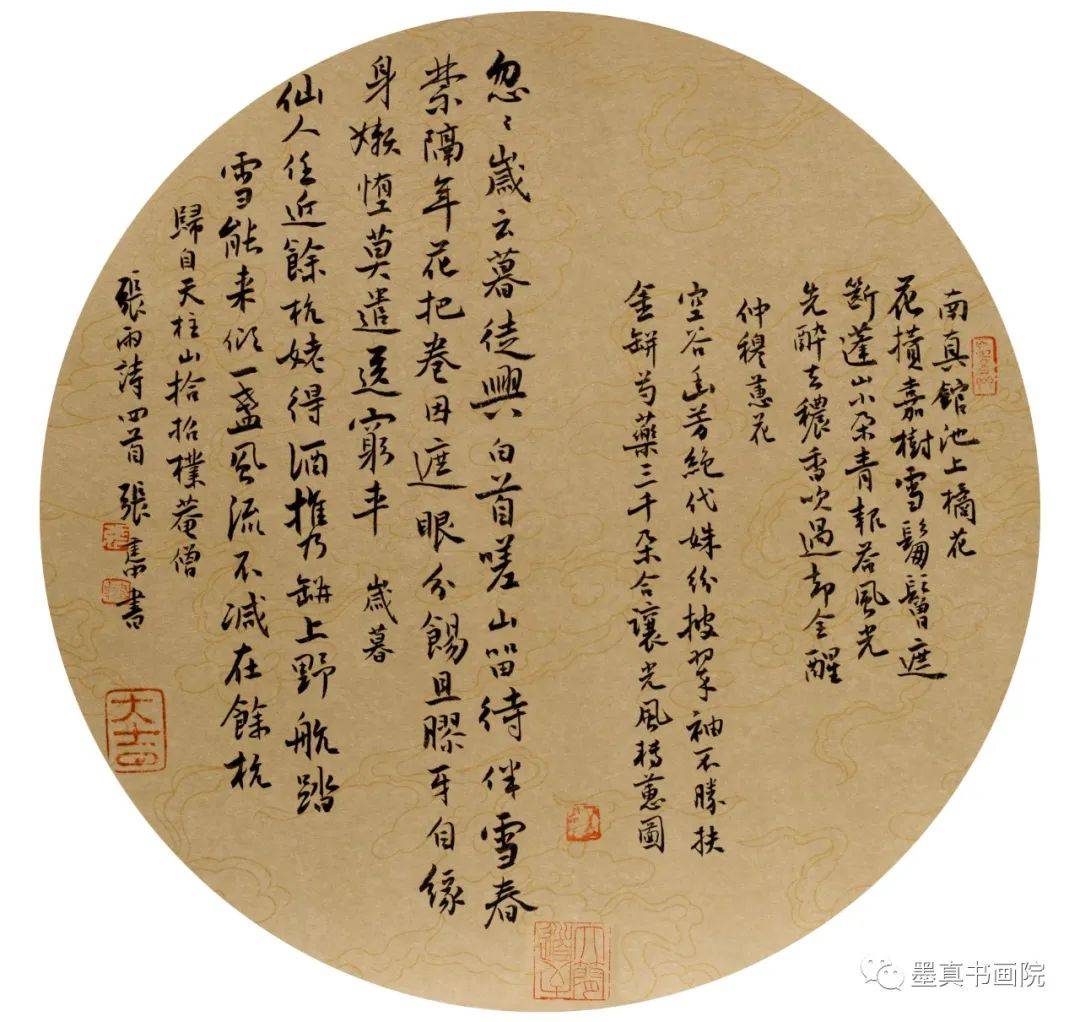 南真館池上摘花
花攢嘉樹雪鬅鬙遮
斷蓬山小朵青報答風光
先醉去穠香吹過却全醒
仲穆蕙花
空谷幽芳絕代姝紛披翠袖不勝扶
金缾芍藥三千朵合讓光風轉蕙圖
忽〻歲云暮徒興白首嗟山留待伴雪春
禁隔年花把卷因遮眼分餳且膠牙自緣
身嬾惰莫遣送窮車 歲暮
仙人住近餘杭姥得酒推乃缾上野航踏
雪能來似一盞風流不減在餘杭
歸自天柱山拾枯樸菴僧
張雨詩四首 張書
墨真书画院